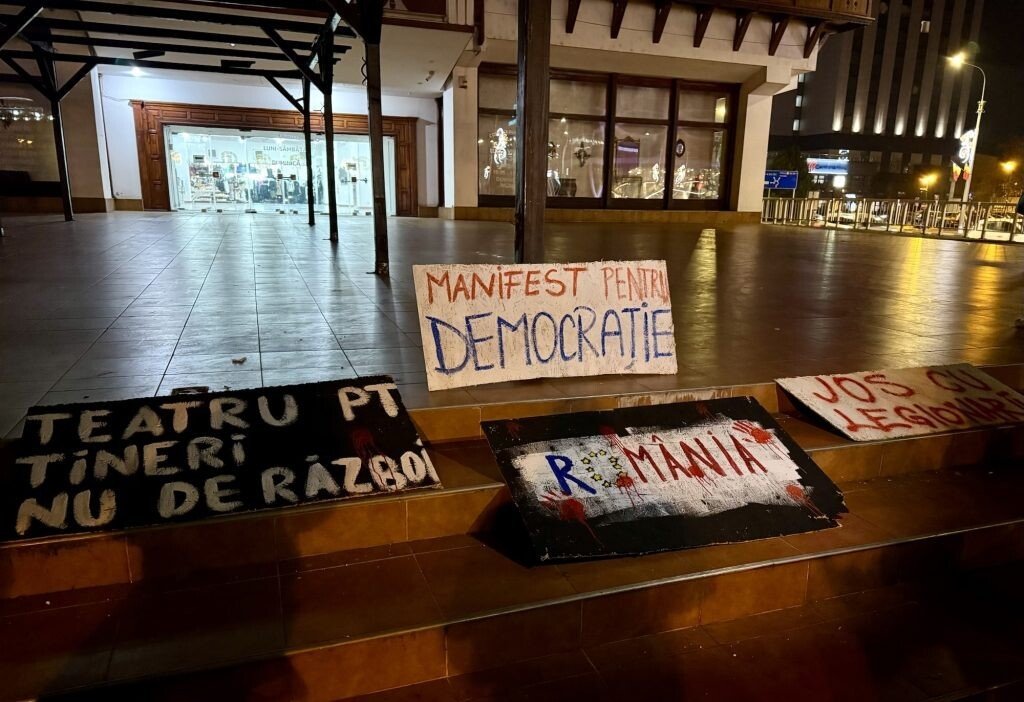 LUNI-SÂMBĂTĂ
MANIFEST PENTRU
DEMOCRAȚIE
TEATRU PT
TINERI
NU DE RĂZBOI
ROMÂNIA
JOS CU
LEGIONARI